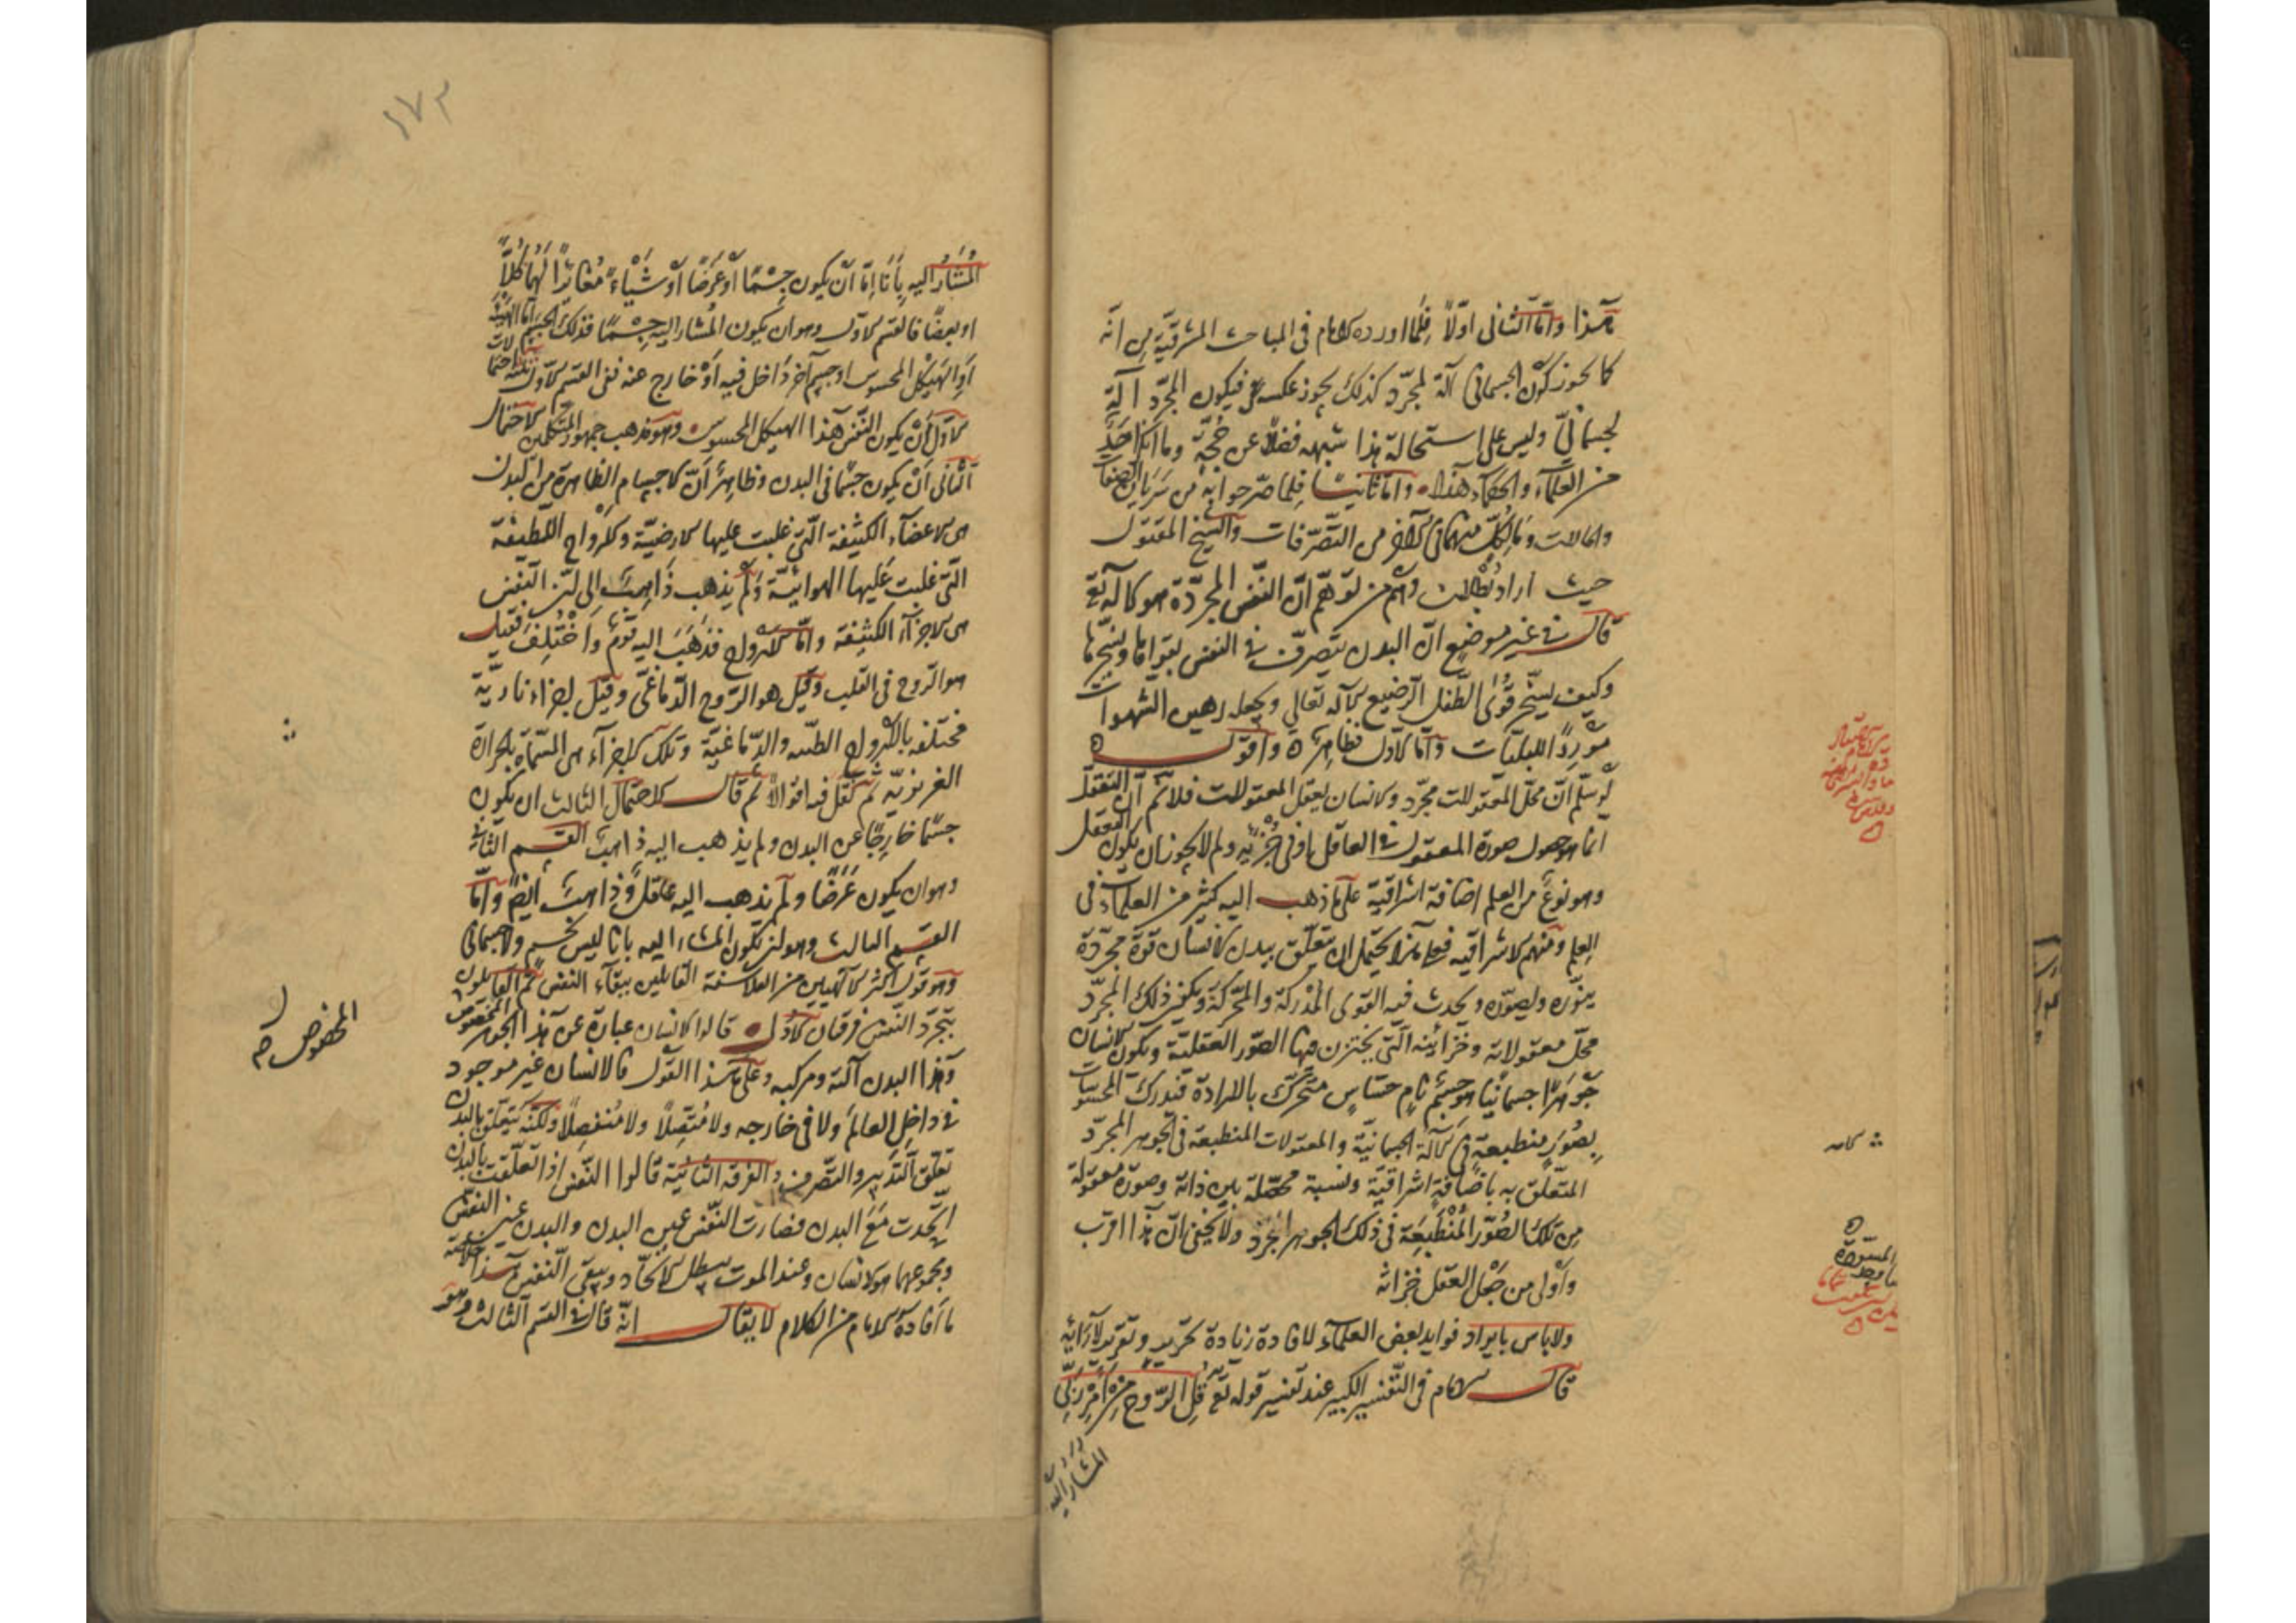 هذا وأمّا الثاني اولًا فلما اورده الامام في المباحث المشرقيّة من انّه
كما يجوز كون الجسماني آلة لمجرّد كذلك يجوز عكسه فيكون المجرّد آلة
لجسمانيّ وليس على استحالة هذا شبهه فضلًا عن حُجّة وما انكر احَدٌ
من العلمآء والحكمآء هذا وامّا ثانيًا فلما صرّحوا به من سَرَيان الصفات
والحالات و كلّ منهما في الآخر من التصّرفات والشيخ المقتول
حيث اراد ابطال وهم من توهّم انّ النّفس المجرّدة هو كاله تع
قال في غير موضع انّ البدن يتصرف في النفس بقواها
وكيف يسخّر قُوى الطّفل الرضيع الآله تعالي ويجعله رهين الشهوات
مورِدًا للبليّات وأمّا الاوّل فظاهرٌ واقول
لو سلّم انّ محلّ المعقولات مجرّد والانسان يعقل المعقولات فلا ثمّ انّ التعقّل
انّما هو حصول صورة المعقول في العاقل او في جُزئه ولم لا يجوز ان يكون التعقل
وهو نوعٌ من العلم اضافة اشراقية على ما ذهب اليه كثير من العلمآء في
العلم ومنهم الاشراقيه فعلى هذا يحتمل ان يتعلّق ببدن الانسان قوّة مجرّدة
ينوّره ويصوّره ويحدث فيه القوى المُدْركة والمحرّكة ويكون ذلك المجرّد
محلّ معقولاته وخزائنه الّتي يختزن فيها الصّور العقليّة ويكون الانسان
جَوْهَرًا جسمانيا هو جسْم نامٍ حسّاسٍ متحّرك بالارادة فيدرك المحسوسات
بِصُوَرٍ منطبعة في الآلة الجسمانيّة والمعقولات المنطبعة في الجوهر المجرّد
المتعلّق به باضافةٍ اشراقيّة ونسبة محصّلة بين ذاته وصورة معقولة
مِن تلك الصُوَر المُنْطبِعَة في ذلك الجوهر المجرّد ولا يخفى انّ هذا اقرب
وأولى من جَعْل العقل خزانة
ولا باس بايراد فوايد بعض العلمآء لافادة زيادة تحرير وتقرير لآرائه
قال الامام في التّفسير الكبير عند تفسير قوله تع قُل الرّوح مِنْ اَمْرِ رَبّي
المُشَارُ اليه
كامه
المُشَارُ اليه بِأنَا إمّا أنْ يكون جِسْمًا أو عَرَضًا أوْ شَيْاءً مُغائرًا لهُما كُلًّا
او بعضًا فالقسم الاول وهو ان يكون المُشار اليه جِسْمًا فذلك الجسم إمّا الهيكل
أو الهَيْكل المحسوس او جسم آخر دَاخل فيه أوْ خارج عنه ففي القسم الاوّل ثلثة احتمالات
الاوّل أنْ يكون النّفس هذا الهيكل المحسوس وهو مذهب جمهور المتكلمين الاحتمال
الثّانى أنْ يكون جسْمًا في البدن وظاهِرٌ أنّ الاجسام الظاهرة من البدن
هى الاعضآء الكثيفة الّتى غلبت عليها الارضيّة والارواح اللطيفة
التّى غلبت عَليها الهوائيّة وَلَم يذهب ذَاهِبٌ الى انّ النّفس
هى الاجزآء الكثيفة وامّا الارواح فذَهَبَ اليه قومٌ وَاخْتُلِفَ فقيل
هو الرّوح في القلب وقيل هو الرّوح الدّماغىّ وقيل اجزاء ناريّة
مختلفه بالارواح القلبيه والدّماغيّة وتلك الاجزآء هى المسّماة بالحرارة
الغريزيّه ثمّ نقل فيه اقوالًا ثم قال الاحتمال الثالث ان يكون
جسْمًا خارِجًا عن البدن ولم يذهب اليه ذاهبٌ القسم الثاني
وهو ان يكون عَرَضًا ولم يذهب اليه عاقلٌ وذاهبٌ ايضًا وأمّا
القسم الثالث وهو ان يكون المشار اليه بانا ليس بجسم ولا جسمانى
وهو قول اكثر الآلهيين من الفلاسفة القائلين ببقآء النفس ثم القائلون
بتجرّد النّفس فرقان الاوّل قالوا الانسان عبارة عن هذا الجوهر المخصوص
وهذا البدن آلته ومركبه وعلى هذا القول فالانسان غير موجود
في داخِل العالَم ولا في خارجه ولا مُتّصِلًا ولا مُنفصِلًا ولكنّه يتعلّق بالبدن
تعلّق التّدبير والتصّرف والفرقه الثانيّة قالوا النّفس اذا تعلّقت بالبدن
اتّحدت مَعَ البدن فصارت النّفس عين البدن والبدن عين النفس
ومجموعهما هو الانسان وعند الموت يبطل الاتحّاد ويبقى النّفس هذا خلاصة
ما أفادَهُ الامام من الكلام لا يقال انّه قال في القسم الثالث وهو
المخصوص صح
١٧٢